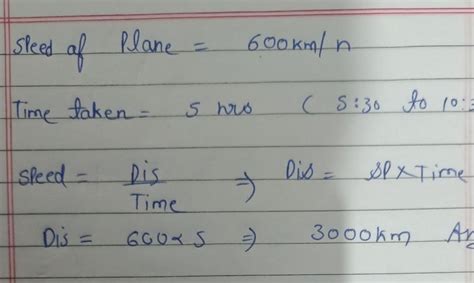 Speed of Plane = 600km/h
Time taken = 5 hrs ( 5:30 to 10:3
Speed = Dis/Time ⇒ Dis = SP x Time
Dis = 600 x 5 ⇒ 3000km An